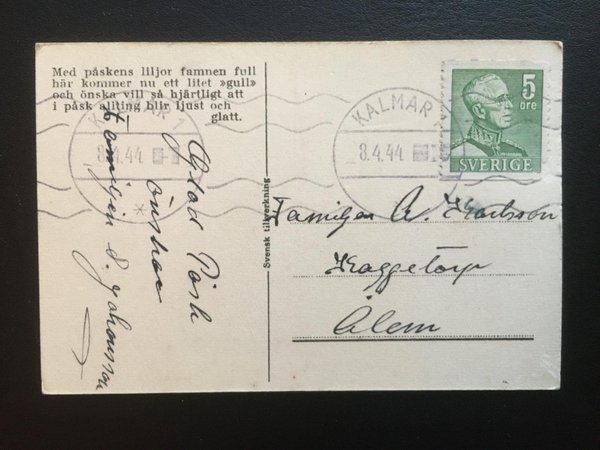 Med påskens liljor famnen full
här kommer nu ett litet »gull»
och önska vill så hjärtligt att
i påsk allting blir ljust och
glatt.
KALMAR 1
8.4.44
Glad Påsk
önskar
Familjen S. Johansson
Svensk tillverkning
KALMAR
8.4.44
5
öre
SVERIGE
Familjen A. Karlsson
Kaggetorp
Ålem